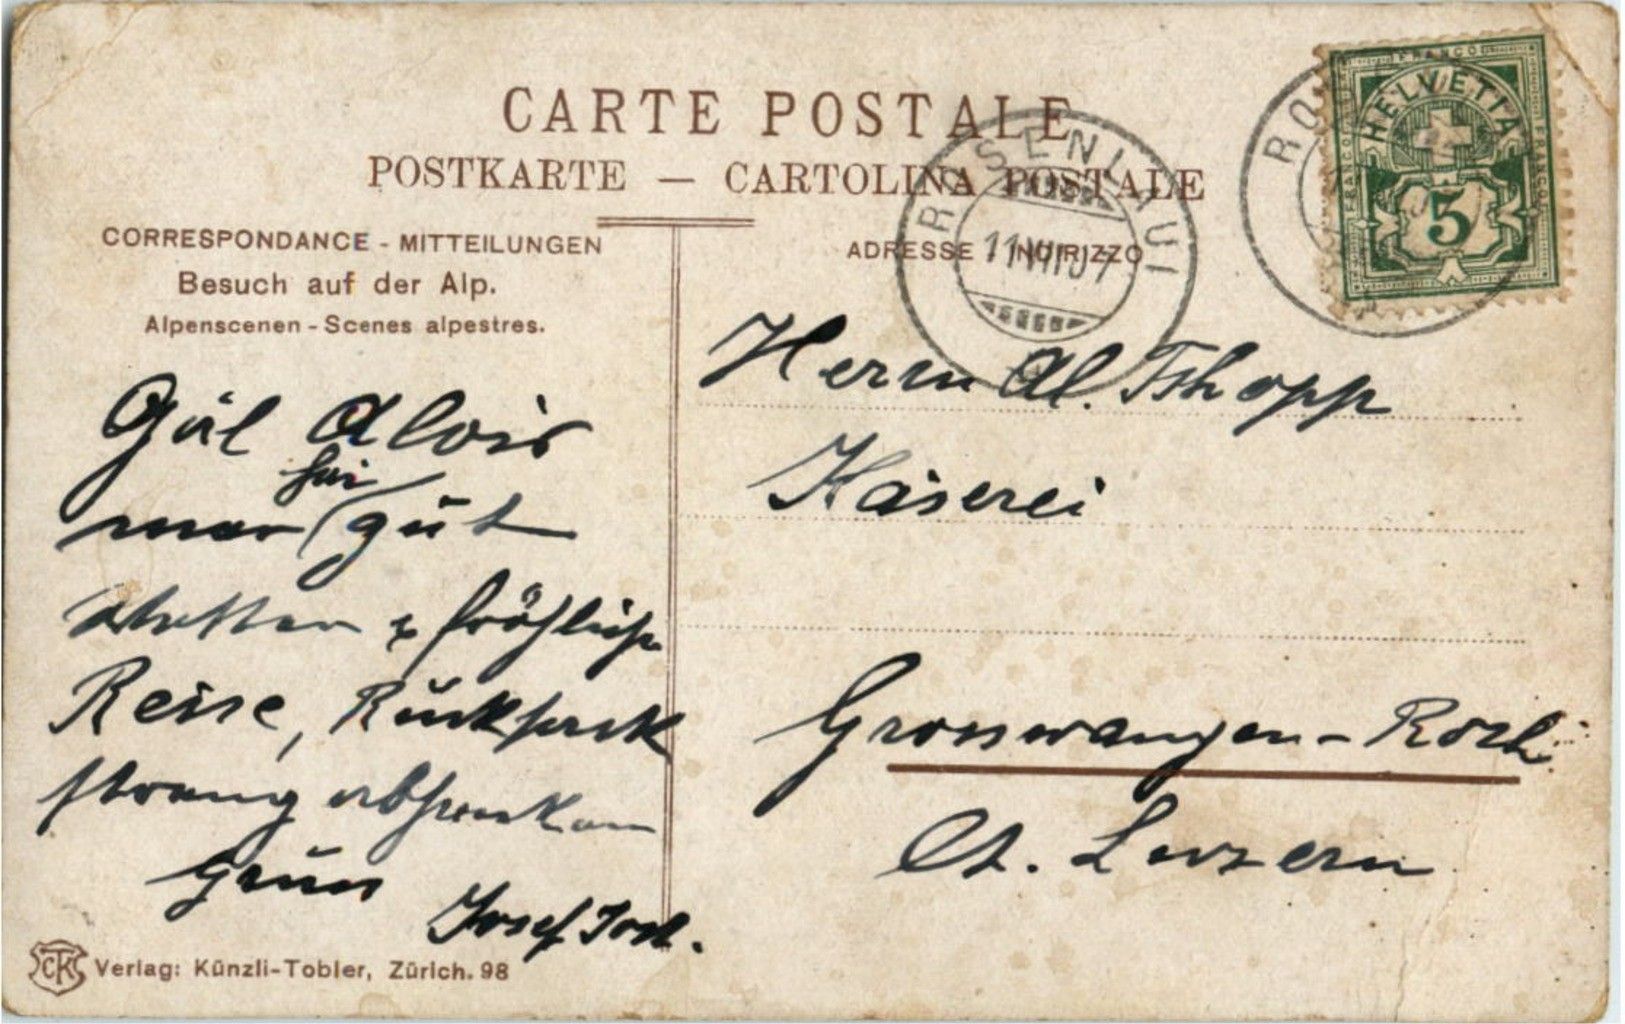 CARTE POSTALE
POSTKARTE — CARTOLINA POSTALE
CORRESPONDANCE - MITTEILUNGEN
Besuch auf der Alp.
Alpenscenen - Scenes alpestres.
ADRESSE INDIRIZZO
ROSENLAUI
11 VII 07
FRANCO
HELVETIA
5
Alois
gut
Wetter & fröhliche
Reise, Rucksack
streng
Gruss
Josef
Herrn Al.
Käserei
Grosswangen-
Ct. Luzern
CTK Verlag: Künzli-Tobler, Zürich. 98